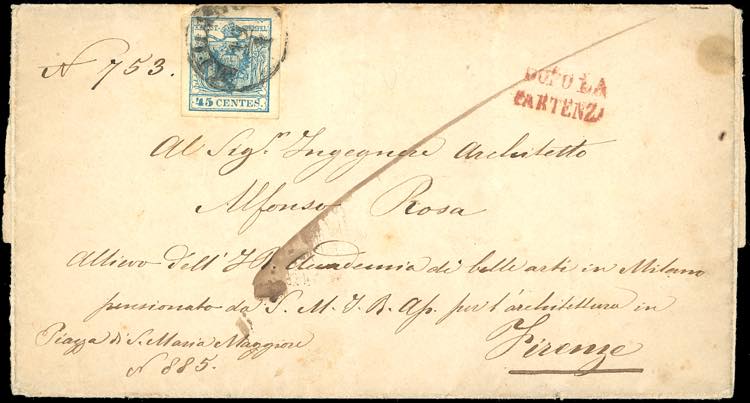 N 753.
45 CENTES.
DOPO LA
PARTENZA
Al Sigr. Ingegnere Architetto
Alfonso Rosa
Allievo dell' I. R. Accademia di belle arti in Milano
pensionato da S. M. I. R. Ap. per l'architettura in
Firenze
Piazza di S. Maria Maggiore
N 885.